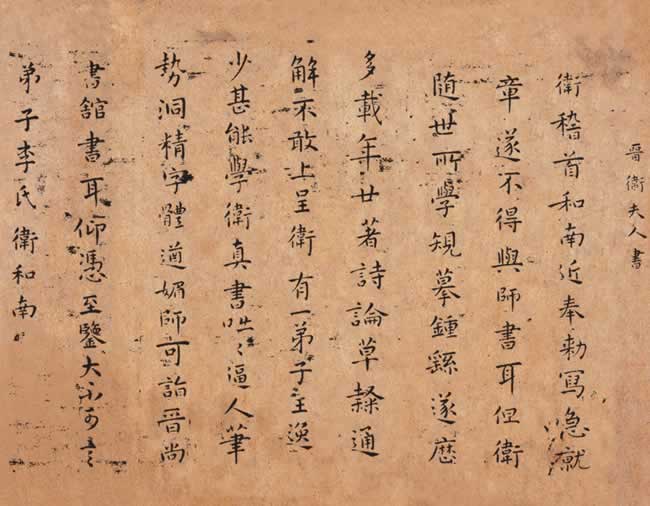 晉衛夫人書
衛稽首和南近奉勅寫急就
章遂不得與師書耳但衛
隨世所學規摹鍾繇遂歷
多載年廿著詩論草隸通
解不敢上呈衛有一弟子王逸
少甚能學衛真書咄〻逼人筆
勢洞精字體遒媚師可詣晉尚
書舘書耳仰憑至鑒大不可言
弟子李氏衛和南